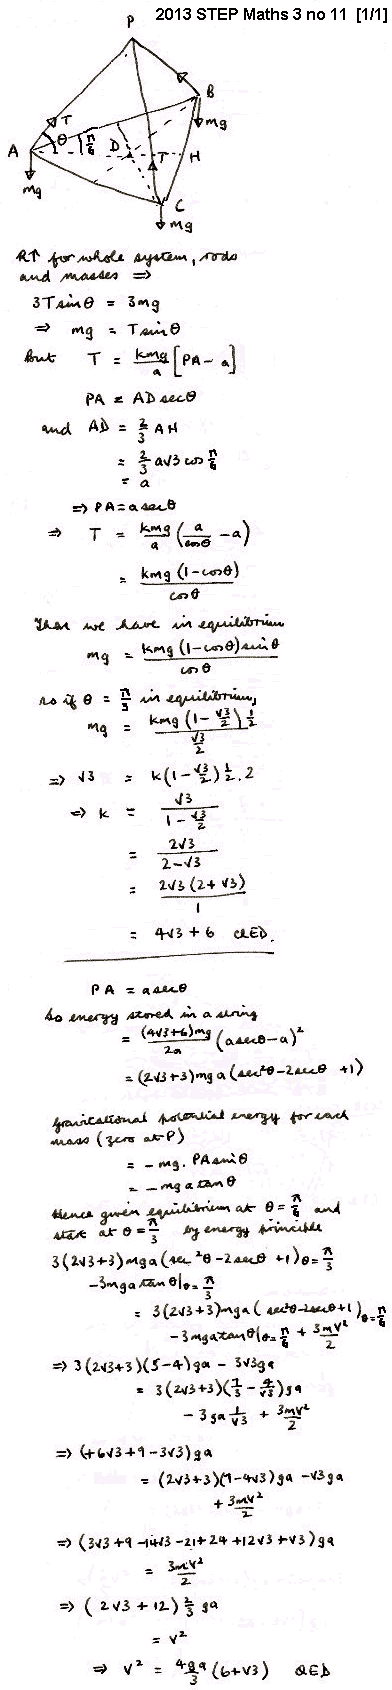 2013 STEP Maths 3 no 11 [1/1]
P
T
B
A
θ
π/6
D
T
H
mg
mg
C
mg
R↑ for whole system, rods
and masses ⇒
3T sin θ = 3mg
⇒ mg = T sin θ
But T = kmg/a [PA - a]
PA = AD sec θ
and AD = 2/3 AH
= 2/3 a√3 cos π/6
= a
⇒ PA = a sec θ
⇒ T = kmg/a (a/cos θ - a)
= kmg (1-cos θ)/cos θ
Then we have in equilibrium
mg = kmg (1-cos θ) sin θ/cos θ
so if θ = π/3 in equilibrium,
mg = kmg (1 - √3/2) 1/2 / (√3/2)
⇒ √3 = k(1 - √3/2) 1/2 . 2
⇒ k = √3/(1 - √3/2)
= 2√3/(2-√3)
= 2√3 (2+√3)/1
= 4√3 + 6 QED.
PA = a sec θ
So energy stored in a string
= (4√3+6)mg/2a (a sec θ - a)²
= (2√3+3)mga (sec²θ - 2 sec θ + 1)
Gravitational potential energy for each
mass (zero at P)
= -mg. PA sin θ
= -mga tan θ
Hence given equilibrium at θ = π/6 and
start at θ = π/3 by energy principle
3(2√3+3)mga (sec²θ - 2 sec θ + 1)θ=π/3
-3mga tan θ|θ=π/3
= 3(2√3+3)mga (sec²θ - 2 sec θ + 1)θ=π/6
-3mga tan θ|θ=π/6 + 3mv²/2
⇒ 3(2√3+3)(5-4)ga - 3√3ga
= 3(2√3+3)(7/3 - 4/√3)ga
- 3ga 1/√3 + 3mv²/2
⇒ (+6√3+9-3√3)ga
= (2√3+3)(7-4√3)ga - √3ga
+ 3mv²/2
⇒ (3√3+9-14√3-21+24+12√3+√3)ga
= 3mv²/2
⇒ (2√3+12) 2/3 ga
= v²
⇒ v² = 4ga/3 (6+√3) QED